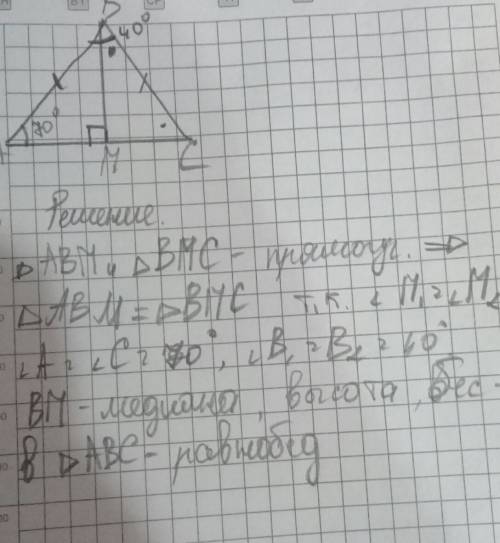 B
40°
70°
A
M
C
Решение.
△ABM и △BMC - прямоуг. ⇒
△ABM = △BMC т.к. ∠M₁=∠M₂
∠A = ∠C = 70°, ∠B₁ = B₂ = 40°
BM - медиана, высота, бес.
В △ABC - равнобед